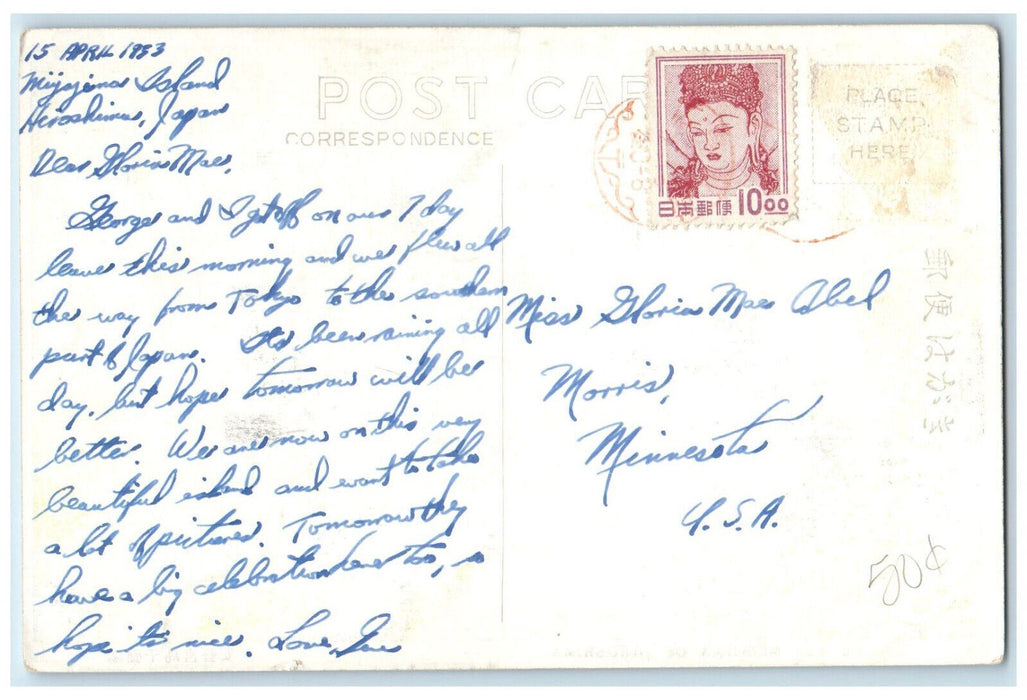 15 APRIL 1953
Miyajima Island
Hiroshima, Japan
POST CAR
CORRESPONDENCE
PLACE
STAMP
HERE
日本郵便 10.00
Dear Gloria Mae,
George and I got off on our 7 day
leave this morning and we flew all
the way from Tokyo to the southern
part of Japan. It's been raining all
day, but hope tomorrow will be
better. We are now on this very
beautiful island and want to take
a lot of pictures. Tomorrow they
have a big celebration here too, so
hope its nice. Love,
Miss Gloria Mae Abel
Morris,
Minnesota
U.S.A.
郵便はがき
50¢